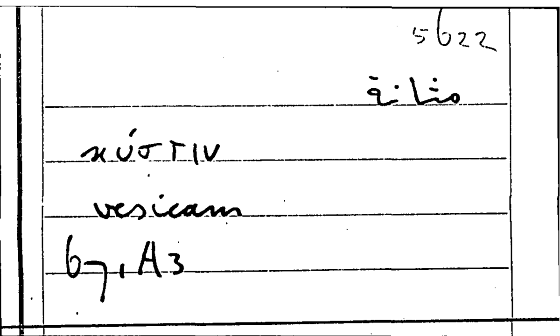 5622
مثانة
κύστιν
vesicam
67, A3